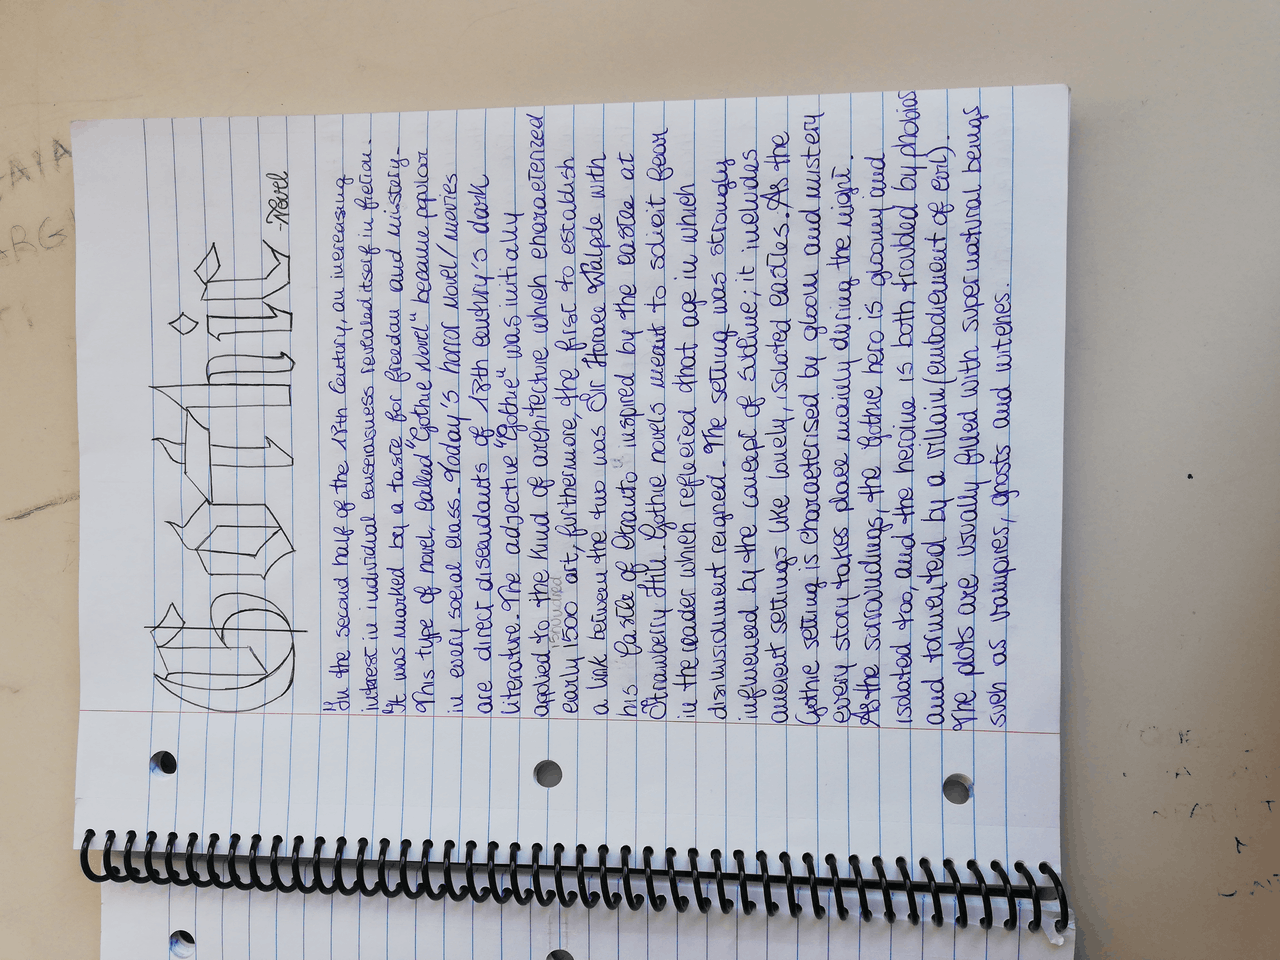 Gothic
-Novel
In the second half of the 18th Century, an increasing
interest in individual consciousness revealed itself in fiction.
It was marked by a taste for freedom and mistery.
This type of novel, called "Gothic Novel" became popular
in every social class. Today's horror novel/movies
are direct discendants of 18th century's dark
literature. The adjective "Gothic" was initially
applied to the kind of architecture which characterized
early 1500 art, furthermore, the first to establish
a link between the two was Sir Horace Walpole with
his "Castle of Otranto" inspired by the castle at
Strawberry Hill. Gothic novels meant to solicit fear
in the reader which reflected that age in which
disillusionment reigned. The setting was strongly
influenced by the concept of sublime; it includes
ancient settings like lovely, isolated castles. As the
Gothic setting is characterised by gloom and mistery
every story takes place mainly during the night.
As the surroundings, the Gothic hero is gloomy and
isolated too, and the heroine is both troubled by phobias
and tormented by a villain (embodiement of evil).
The plots are usually filled with supernatural beings
such as vampires, ghosts and witches.